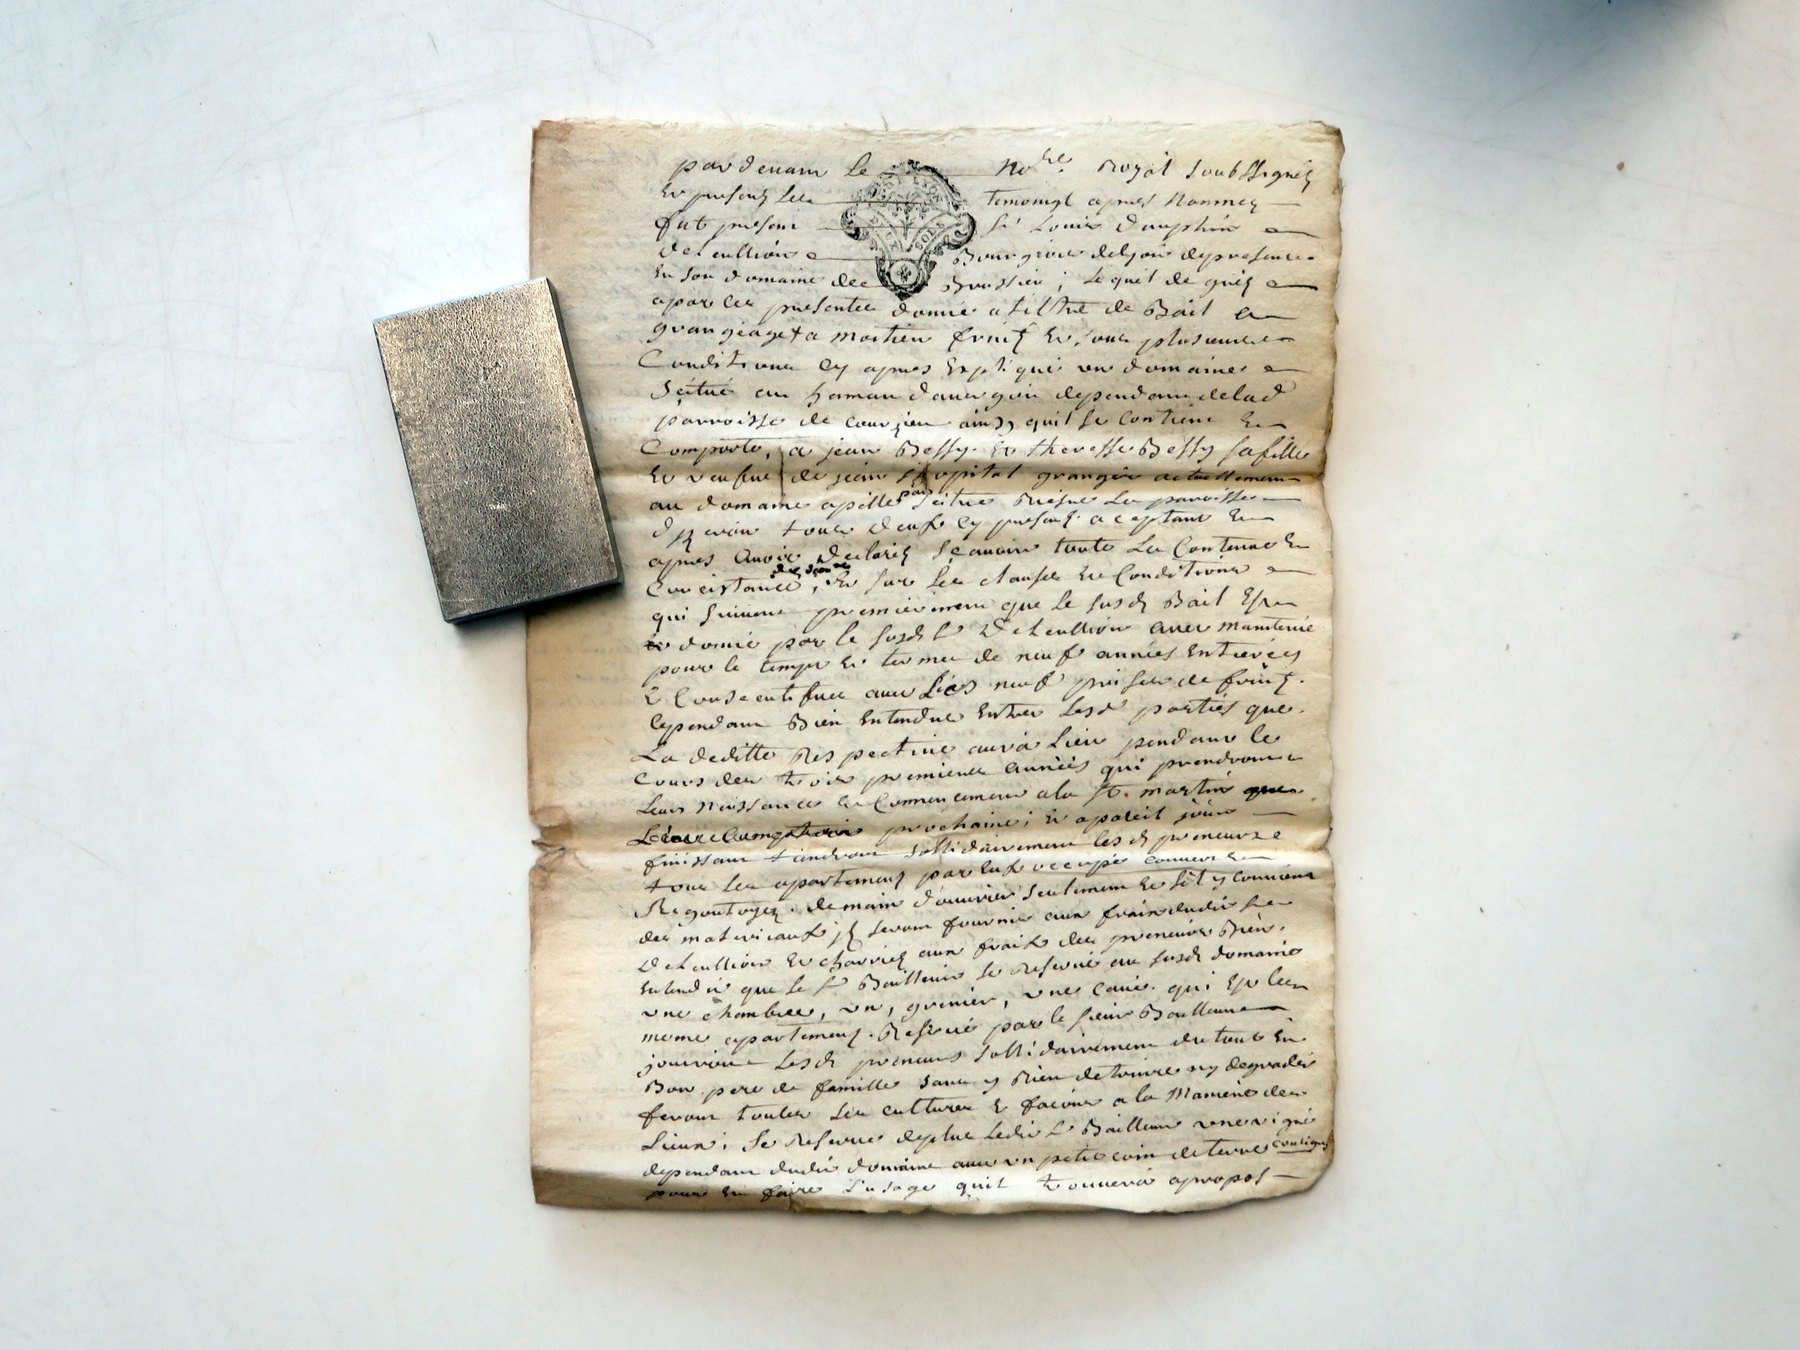 pardevant le No.re Royal soubssignéz
Et presentz les temoingt apres nommez
fut present Sr Louis dauphin
De Leullion Bourgeois de lyon de present
En son domaine des Brossies ; lequel de gréz
a par ces presentes donné a tiltre de Bail a
grangéage & a moitier fruitz Et sous plusieurs
Conditions Cy apres Expliqué un domaine
Scitué au hamau d'auergin dependant de lad
parroisse de courzieu ainsy quil se contient Et
Comporte, a jean Bessy Et theresse Bessy sa fille
Et veufue de jean hopital granger actuellement
au domaine apellé par scitue Riesre La parroisse
d'yzeron tous deux cy presentz aceptant Et
apres avoir declaréz scavoir toute La Contenue Et
Consistance, Et sur Les clauses Et Conditions
qui suiuent premierement que le susd Bail Est
donné par le susd Sr De Leullion avec maintenüe
pour le temps Et termes de neuf années Entierées
& Consecutifues avec Lées neuf prises de fruitz.
Cependant Bien Entendue Entres Lesd parties que
La deditte Respective aura Lieu pendant le
Cours des trois premieres années qui prendront
Leur naissance Et Commencement a la St. martin
prochaine ; Et a pareil jour
finissant tiendront sollidairement lesd preneurs
tous les apartementz par Eux occupé
Regoutoyez de main d'ouvrier seulement Et s'il y convient
des materieaux jlz seront fournis aux frais dudit Sr
De Leullion Et charriéz aux fraix des preneurs Bien
Entendu que le Sr Bailleur se Reserve au susd domaine
une chambre, un, grenier, une cave qui Est les
meme apartementz Reservé par le sieur Bailleur
jouiront Lesd preneurs sollidairement du tout En
Bon pere de famille sans y Rien detruire ny degrader
feront toutes les cultures & facons a la Maniere des
Lieux ; Se Reserve deplus Ledit Sr Bailleur une vigne
dependant dudit domaine avec un petit coin de terre contigus
pour En faire L'usage quil trouvera apropos